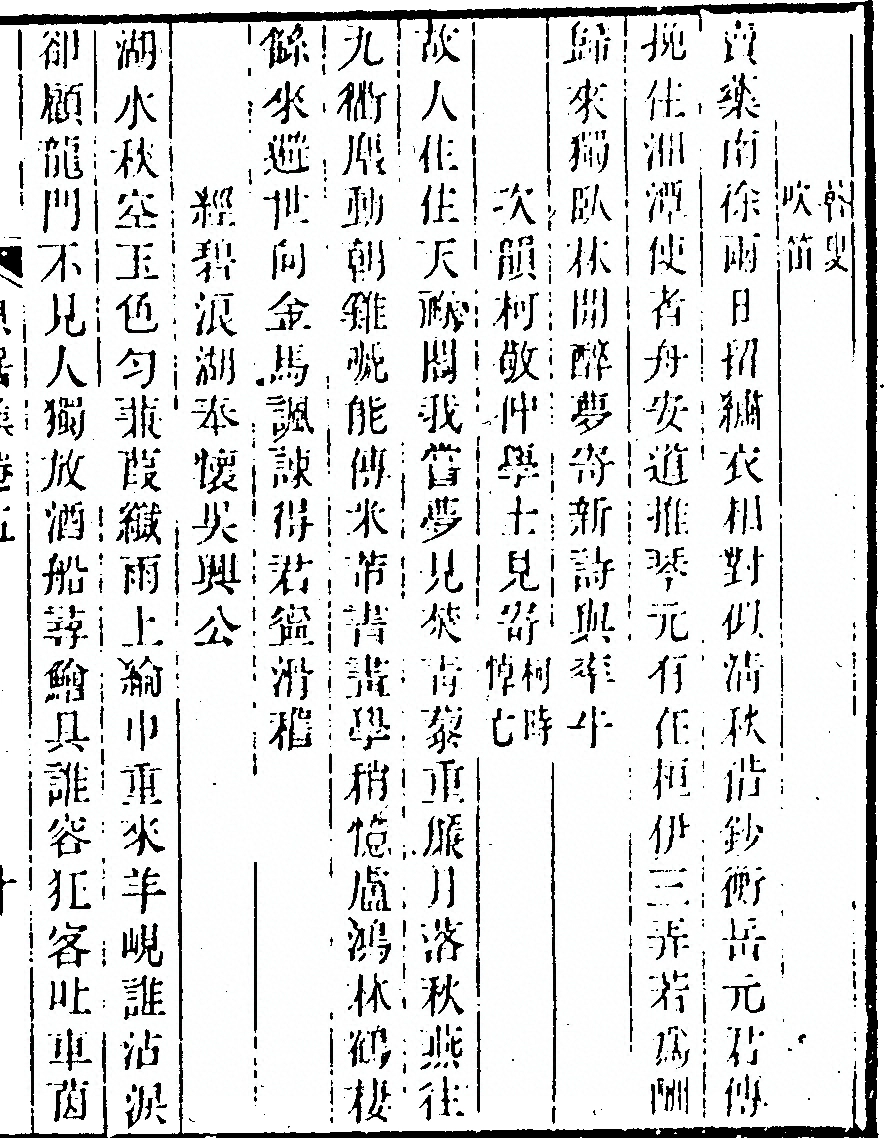 幹叟
吹笛
賣藥南徐雨日招繡衣相對似清秋偕鈔衡岳元君傳
挽住湘潭使者舟安道推琴元有任桓伊三弄若爲酬
歸來獨臥林間醉夢寄新詩與牽牛
次韻柯敬仲學士見寄
柯時
悼亡
故人住住天祿閣我嘗夢見焚青藜重簾月落秋燕往
九衢塵動朝雞號能傳米芾書畫學稍憶盧鴻林鶴棲
餘來避世向金馬諷諫得君盤滑稽
經碧浪湖奉懷吳興公
湖水秋空玉色勻蒹葭纖雨上綸巾重來羊峴誰沾淚
卻顧龍門不見人獨放酒船蓴鱠具誰容狂客吐車茵
集卷五
十